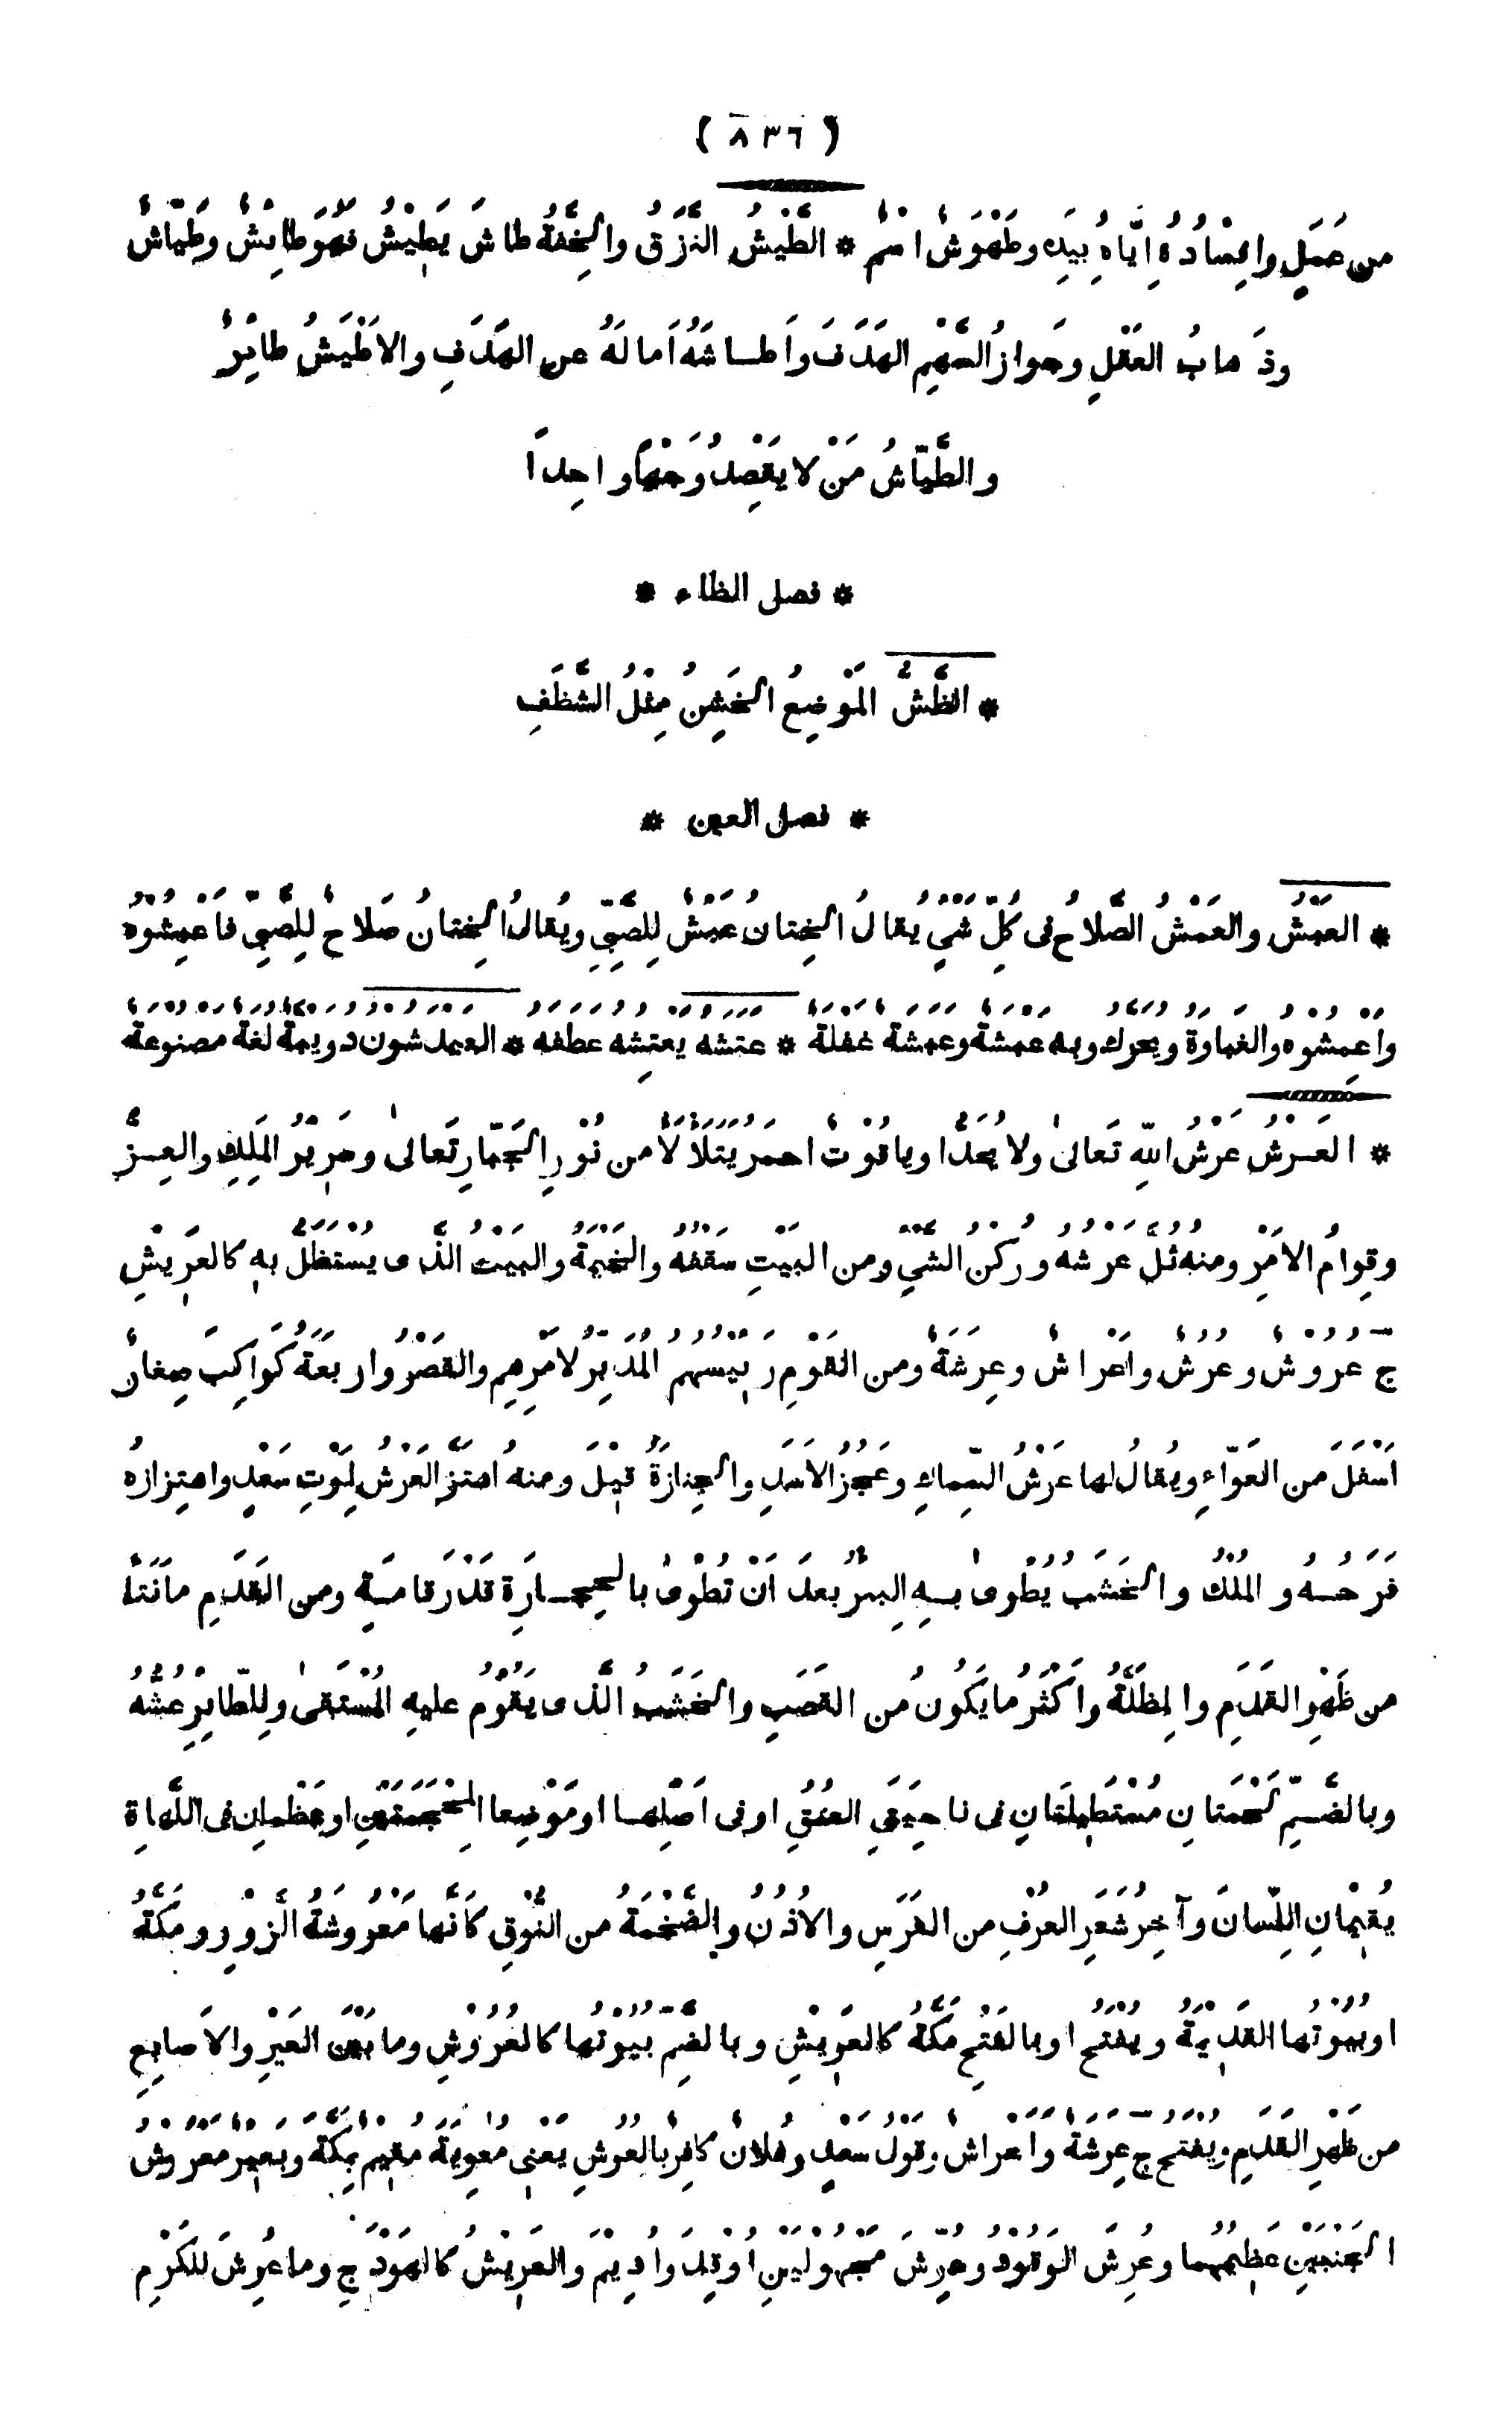 ( ٨٣٦ )
من عَمَلٍ وافْسَادُهُ اِيّاهُ بِيَدِه وطَهْوَشٌ اسْمٌ * الطَّيْشُ النَّزَقُ والخِفَّةُ طاشَ يَطِيْشُ فهُوَ طائِشٌ وطَيّاشٌ
وذَهابُ العَقْلِ وجَوازُ السَّهْمِ الهَدَفَ واَطاشَهُ اَمالَهُ عن الهَدَفِ والاَطْيَشُ طائِرٌ
والطَّيّاشُ مَنْ لا يَقْصِدُ وَجْهًا واحِداً
* فصل الظاء *
* الظَّشُّ المَوْضِعُ الخَشِنُ مِثْلُ الشَّظَفِ
* فصل العين *
* العَبْشُ والعَمْشُ الصَّلاحُ فى كُلِّ شىءٍ يُقالُ الخِتانُ عَبْشٌ لِلصَّبِيِّ ويُقالُ الخِتانُ صَلاحٌ لِلصَّبِيِّ فاعْبِشُوهُ
واعْمِشُوهُ والغَباوَةُ ويُحَرَّكُ وبه عَبْشَةٌ وعَبَشَةٌ غَفْلَةٌ * عَتَشَهُ يَعْتِشُهُ عَطَفَهُ * العَيْدَشُونُ دُوَيْبَّةٌ لُغَةٌ مَصْنُوعَةٌ
* العَرْشُ عَرْشُ اللهِ تَعالىٰ ولا يُحَدُّ او ياقُوْتٌ احْمَرُ يَتَلَأْلَأُ من نُوْرِ الجَبّارِ تَعالىٰ وسَرِيْرُ المَلِكِ والعِزُّ
وقِوامُ الاَمْرِ ومنه ثُلَّ عَرْشُهُ ورُكْنُ الشَّيْءِ ومن البَيْتِ سَقْفُهُ والخَيْمَةُ والبَيْتُ الَّذى يُسْتَظَلُّ به كالعَرِيْشِ
ج عُرُوْشٌ وعُرُشٌ واَعْراشٌ وعِرَشَةٌ ومن القَوْمِ رَئِيْسُهُم المُدَبِّرُ لاَمْرِهِم والقَصْرُ واَرْبَعَةُ كَواكِبَ صِغارٌ
اَسْفَلَ من العَوّاءِ ويُقالُ لها عَرْشُ السِّماكِ وعَجُزُ الاَسَدِ والجِنازَةُ قِيْلَ ومنه اهتَزَّ العَرْشُ لِمَوْتِ سَعْدٍ واهتِزازُهُ
فَرَحُهُ والمُلْكُ والخَشَبُ يُطْوىٰ بهِ البِئْرُ بعدَ اَنْ تُطْوىٰ بالحِجارَةِ قَدْرَ قامَةٍ ومن القَدَمِ ما نَتَأَ
من ظَهْرِ القَدَمِ والمِظَلَّةُ واَكْثَرُ ما يَكُونُ من القَصَبِ والخَشَبُ الَّذى يَقُوْمُ عليهِ المُسْتَقىٰ ولِلطّائِرِ عُشُّهُ
وبالضَّمِّ لَحْمَتانِ مُسْتَطِيْلَتانِ فى ناحِيَتَىِ العُنُقِ او فى اَصْلِها او مَوْضِعا المِحْجَمَتَيْنِ او عَظْمانِ فى اللَّهاةِ
يُقِيْمانِ اللِّسانَ وآخِرُ شَعَرِ العُرْفِ من الفَرَسِ والاُذُنُ والضَّخْمَةُ من النُّوْقِ كاَنَّها مَعْرُوشَةُ الزَّوْرِ ومَكَّةُ
او بُيُوْتُها القَدِيْمَةُ ويُفْتَحُ او بالفَتْحِ مَكَّةُ كالعَرِيْشِ وبالضَّمِّ بُيُوْتُها كالعُرُوْشِ وما بَيْنَ العَيْرِ والاَصابِعِ
من ظَهْرِ القَدَمِ ويُفْتَحُ ج عِرَشَةٌ واَعْراشٌ وقَوْلُ سَعْدٍ وفُلانٌ كافِرٌ بالعُرُشِ يَعْنِى مُعوِيَةَ مُقِيْمٌ بِمَكَّةَ وبَعِيْرٌ مَعْرُوْشُ
الجَنْبَيْنِ عَظِيْمُهُما وعُرِشَ الوَقُوْدُ وعُرِّشَ مَجْهُولَيْنِ اُوْقِدَ واُدِيْمَ والعَرِيْشُ كالهَوْدَجِ وما عُرِشَ لِلْكَرْمِ